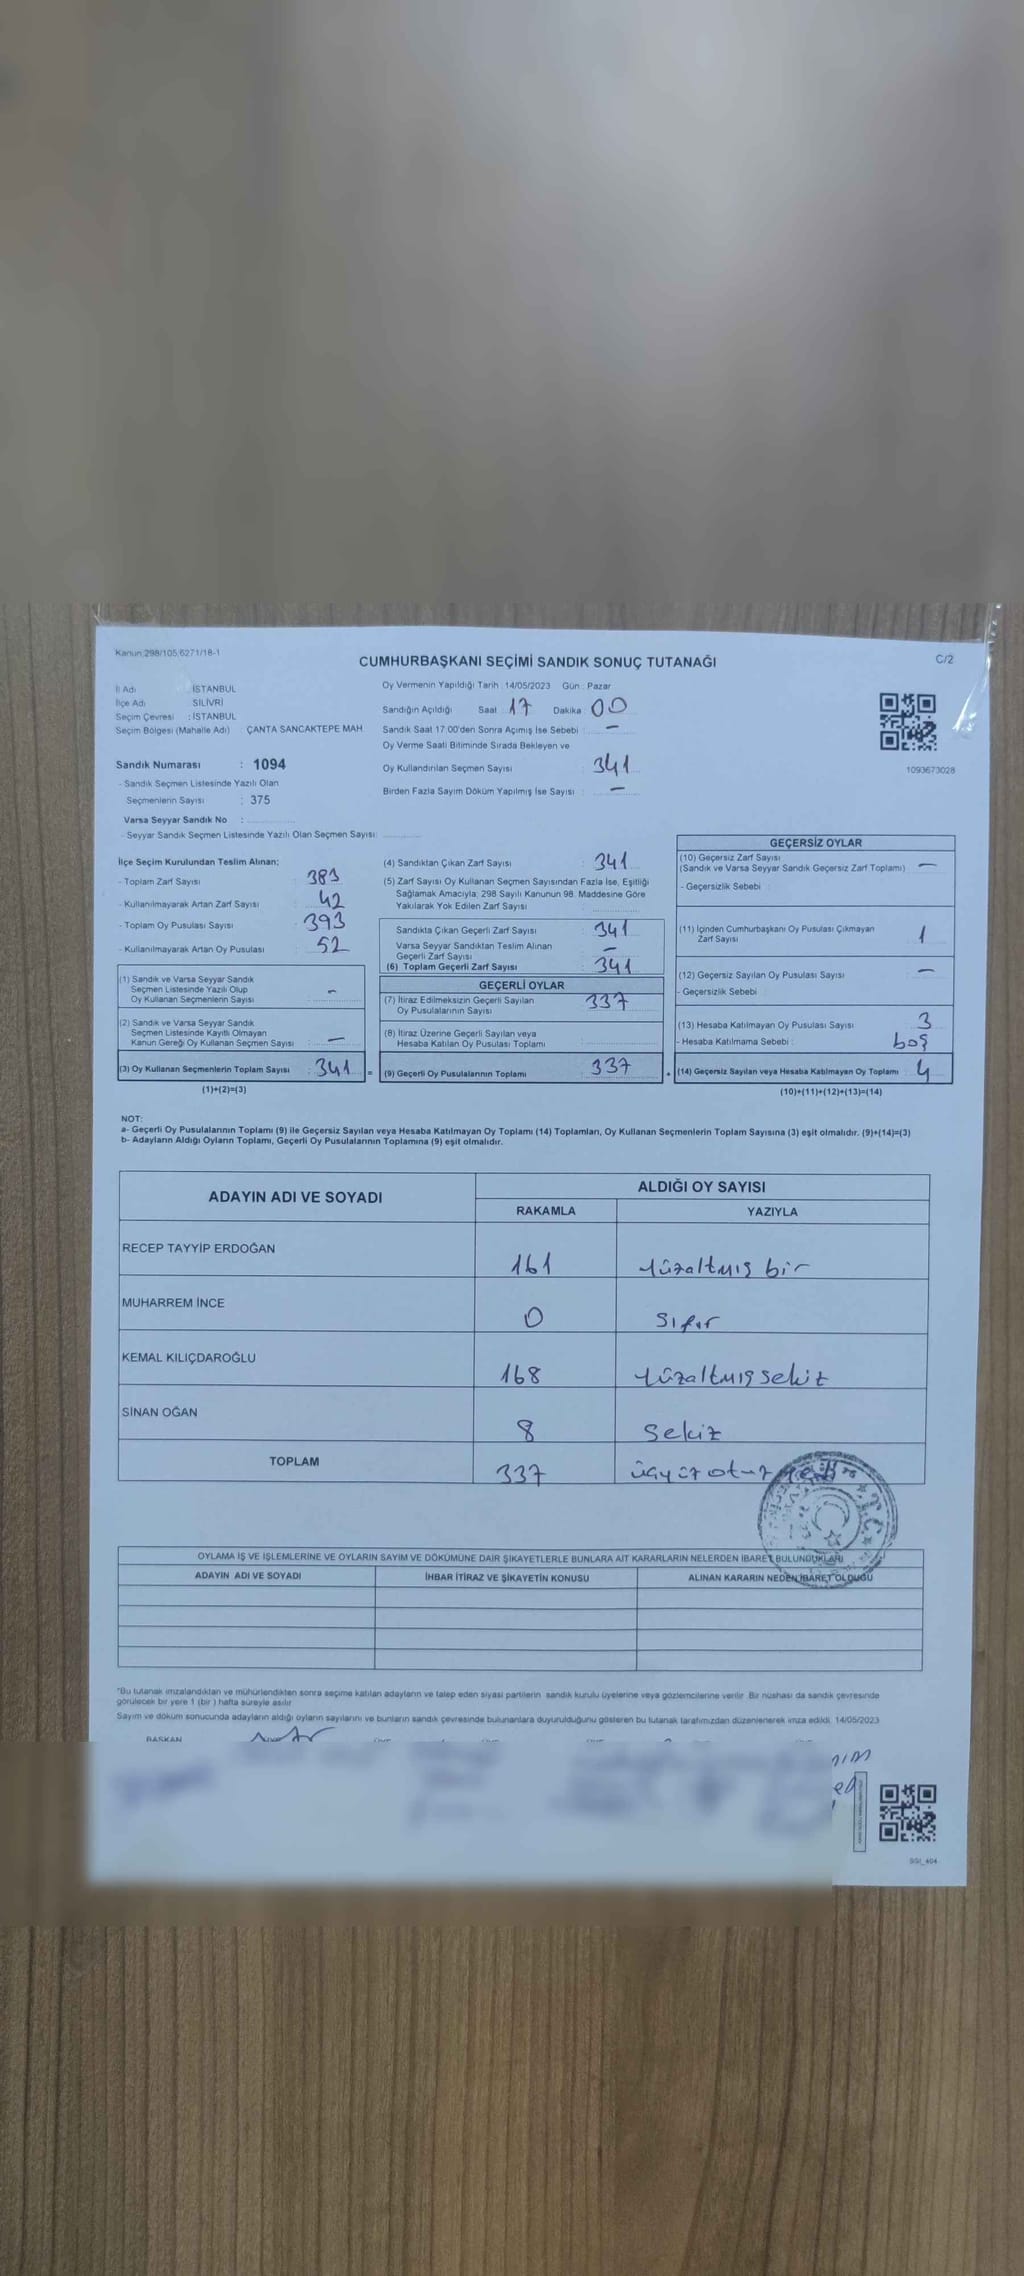 Kanun:298/105,6271/18-1
C/2
CUMHURBAŞKANI SEÇİMİ SANDIK SONUÇ TUTANAĞI
İl Adı : İSTANBUL
İlçe Adı : SİLİVRİ
Seçim Çevresi : İSTANBUL
Seçim Bölgesi (Mahalle Adı) ÇANTA SANCAKTEPE MAH.
Sandık Numarası : 1094
- Sandık Seçmen Listesinde Yazılı Olan
Seçmenlerin Sayısı : 375
Varsa Seyyar Sandık No :
- Seyyar Sandık Seçmen Listesinde Yazılı Olan Seçmen Sayısı:
Oy Vermenin Yapıldığı Tarih : 14/05/2023 Gün : Pazar
Sandığın Açıldığı Saat : 17 Dakika : 00
Sandık Saat 17:00'den Sonra Açımış İse Sebebi : —
Oy Verme Saati Bitiminde Sırada Bekleyen ve
Oy Kullandırılan Seçmen Sayısı : 341
Birden Fazla Sayım Döküm Yapılmış İse Sayısı : —
1093673028
İlçe Seçim Kurulundan Teslim Alınan:
- Toplam Zarf Sayısı : 383
- Kullanılmayarak Artan Zarf Sayısı : 42
- Toplam Oy Pusulası Sayısı : 393
- Kullanılmayarak Artan Oy Pusulası : 52
(1) Sandık ve Varsa Seyyar Sandık
Seçmen Listesinde Yazılı Olup
Oy Kullanan Seçmenlerin Sayısı : —
(2) Sandık ve Varsa Seyyar Sandık
Seçmen Listesinde Kayıtlı Olmayan
Kanun Gereği Oy Kullanan Seçmen Sayısı : —
(3) Oy Kullanan Seçmenlerin Toplam Sayısı : 341
(1)+(2)=(3)
(4) Sandıktan Çıkan Zarf Sayısı : 341
(5) Zarf Sayısı Oy Kullanan Seçmen Sayısından Fazla İse, Eşitliği
Sağlamak Amacıyla, 298 Sayılı Kanunun 98. Maddesine Göre
Yakılarak Yok Edilen Zarf Sayısı :
Sandıkta Çıkan Geçerli Zarf Sayısı : 341
Varsa Seyyar Sandıktan Teslim Alınan
Geçerli Zarf Sayısı : —
(6) Toplam Geçerli Zarf Sayısı : 341
GEÇERLİ OYLAR
(7) İtiraz Edilmeksizin Geçerli Sayılan
Oy Pusulalarının Sayısı : 337
(8) İtiraz Üzerine Geçerli Sayılan veya
Hesaba Katılan Oy Pusulası Toplamı :
= (9) Geçerli Oy Pusulalarının Toplamı : 337
GEÇERSİZ OYLAR
(10) Geçersiz Zarf Sayısı
(Sandık ve Varsa Seyyar Sandık Geçersiz Zarf Toplamı) : —
- Geçersizlik Sebebi :
(11) İçinden Cumhurbaşkanı Oy Pusulası Çıkmayan
Zarf Sayısı 1
(12) Geçersiz Sayılan Oy Pusulası Sayısı : —
- Geçersizlik Sebebi :
(13) Hesaba Katılmayan Oy Pusulası Sayısı : 3
- Hesaba Katılmama Sebebi : boş
+ (14) Geçersiz Sayılan veya Hesaba Katılmayan Oy Toplamı : 4
(10)+(11)+(12)+(13)=(14)
NOT:
a- Geçerli Oy Pusulalarının Toplamı (9) ile Geçersiz Sayılan veya Hesaba Katılmayan Oy Toplamı (14) Toplamları, Oy Kullanan Seçmenlerin Toplam Sayısına (3) eşit olmalıdır. (9)+(14)=(3)
b- Adayların Aldığı Oyların Toplamı, Geçerli Oy Pusulalarının Toplamına (9) eşit olmalıdır.
ADAYIN ADI VE SOYADI
ALDIĞI OY SAYISI
RAKAMLA YAZIYLA
RECEP TAYYİP ERDOĞAN 161 Yüzaltmış bir
MUHARREM İNCE 0 Sıfır
KEMAL KILIÇDAROĞLU 168 Yüzaltmış sekiz
SİNAN OĞAN 8 Sekiz
TOPLAM 337 üçyüz otuz yedi
T.C.
OYLAMA İŞ VE İŞLEMLERİNE VE OYLARIN SAYIM VE DÖKÜMÜNE DAİR ŞİKAYETLERLE BUNLARA AİT KARARLARIN NELERDEN İBARET BULUNDUKLARI
ADAYIN ADI VE SOYADI İHBAR İTİRAZ VE ŞİKAYETİN KONUSU ALINAN KARARIN NEDEN İBARET OLDUĞU
*Bu tutanak imzalandıktan ve mühürlendikten sonra seçime katılan adayların ve talep eden siyasi partilerin sandık kurulu üyelerine veya gözlemcilerine verilir. Bir nüshası da sandık çevresinde
görülecek bir yere 1 (bir) hafta süreyle asılır.
Sayım ve döküm sonucunda adayların aldığı oyların sayılarını ve bunların sandık çevresinde bulunanlara duyurulduğunu gösteren bu tutanak tarafımızdan düzenlenerek imza edildi. 14/05/2023
BAŞKAN